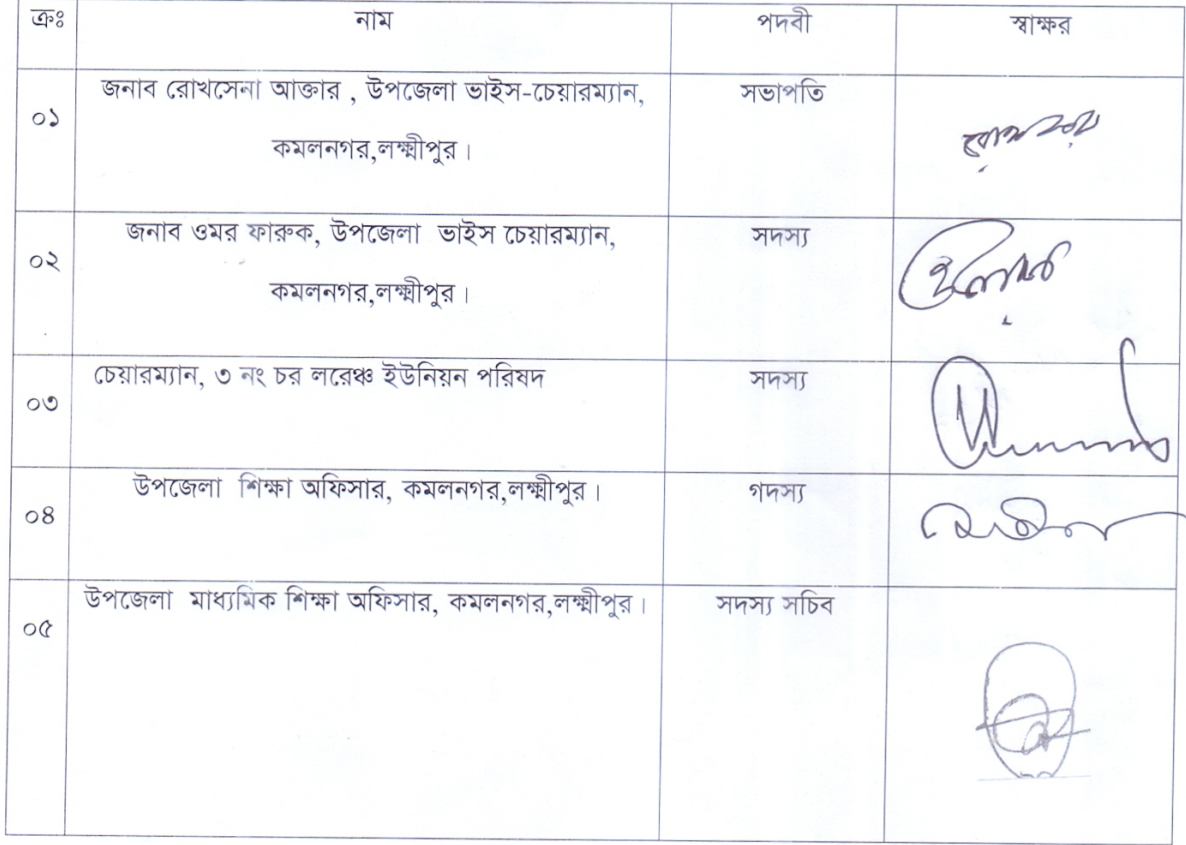 ক্রঃ নাম পদবী স্বাক্ষর
জনাব রোখসেনা আক্তার , উপজেলা ভাইস-চেয়ারম্যান, সভাপতি
০১
কমলনগর,লক্ষ্মীপুর।
জনাব ওমর ফারুক, উপজেলা ভাইস চেয়ারম্যান, সদস্য
০২
কমলনগর,লক্ষ্মীপুর।
চেয়ারম্যান, ৩ নং চর লরেঞ্চ ইউনিয়ন পরিষদ সদস্য
০৩
উপজেলা শিক্ষা অফিসার, কমলনগর,লক্ষ্মীপুর। সদস্য
০৪
উপজেলা মাধ্যমিক শিক্ষা অফিসার, কমলনগর,লক্ষ্মীপুর। সদস্য সচিব
০৫